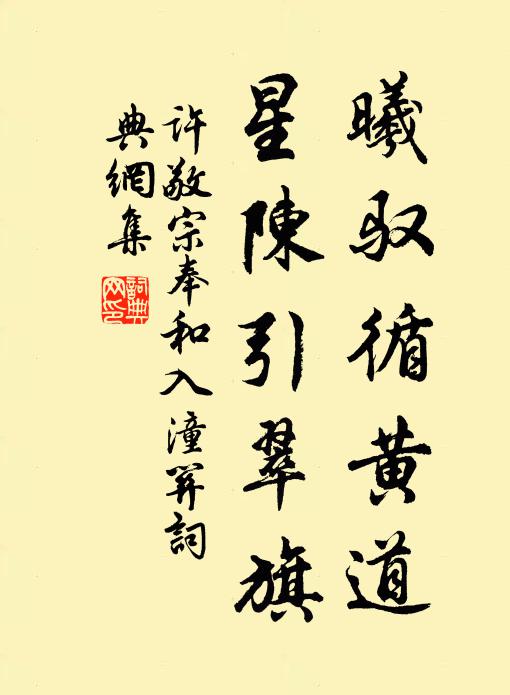 曦驭循黄道
星陳引翠旗
許敬宗奉和入潼関詞
典網集
詞典网印